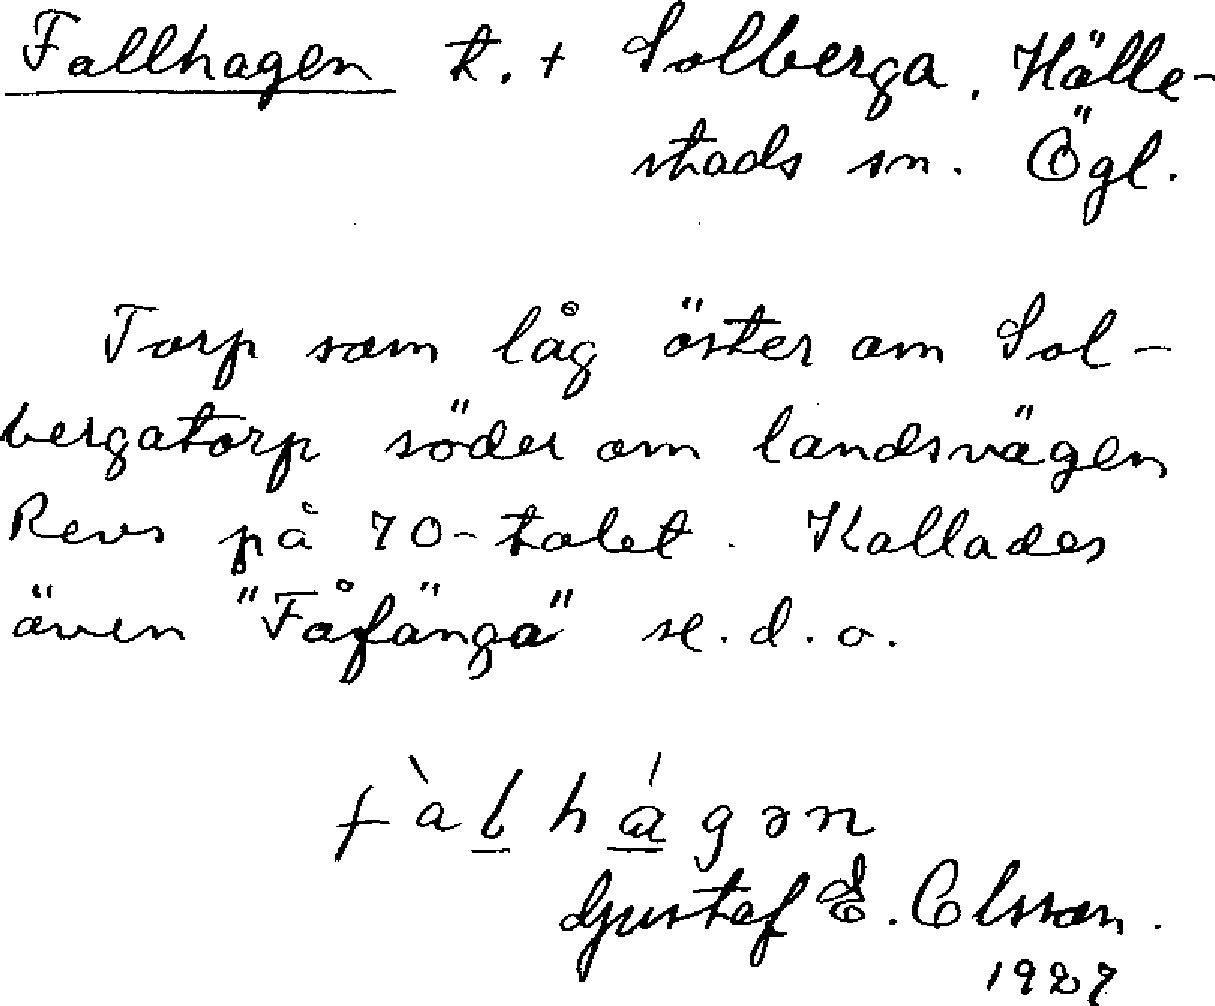 Fallhagen t. + Solberga. Hälle-
stads sn. Ögl.
Torp som låg öster om Sol-
bergatorp söder om landsvägen
Revs på 70-talet. Kallades
även "Fåfänga" se. d. o.
fàlhágən
Gustaf E. Olsson.
1927